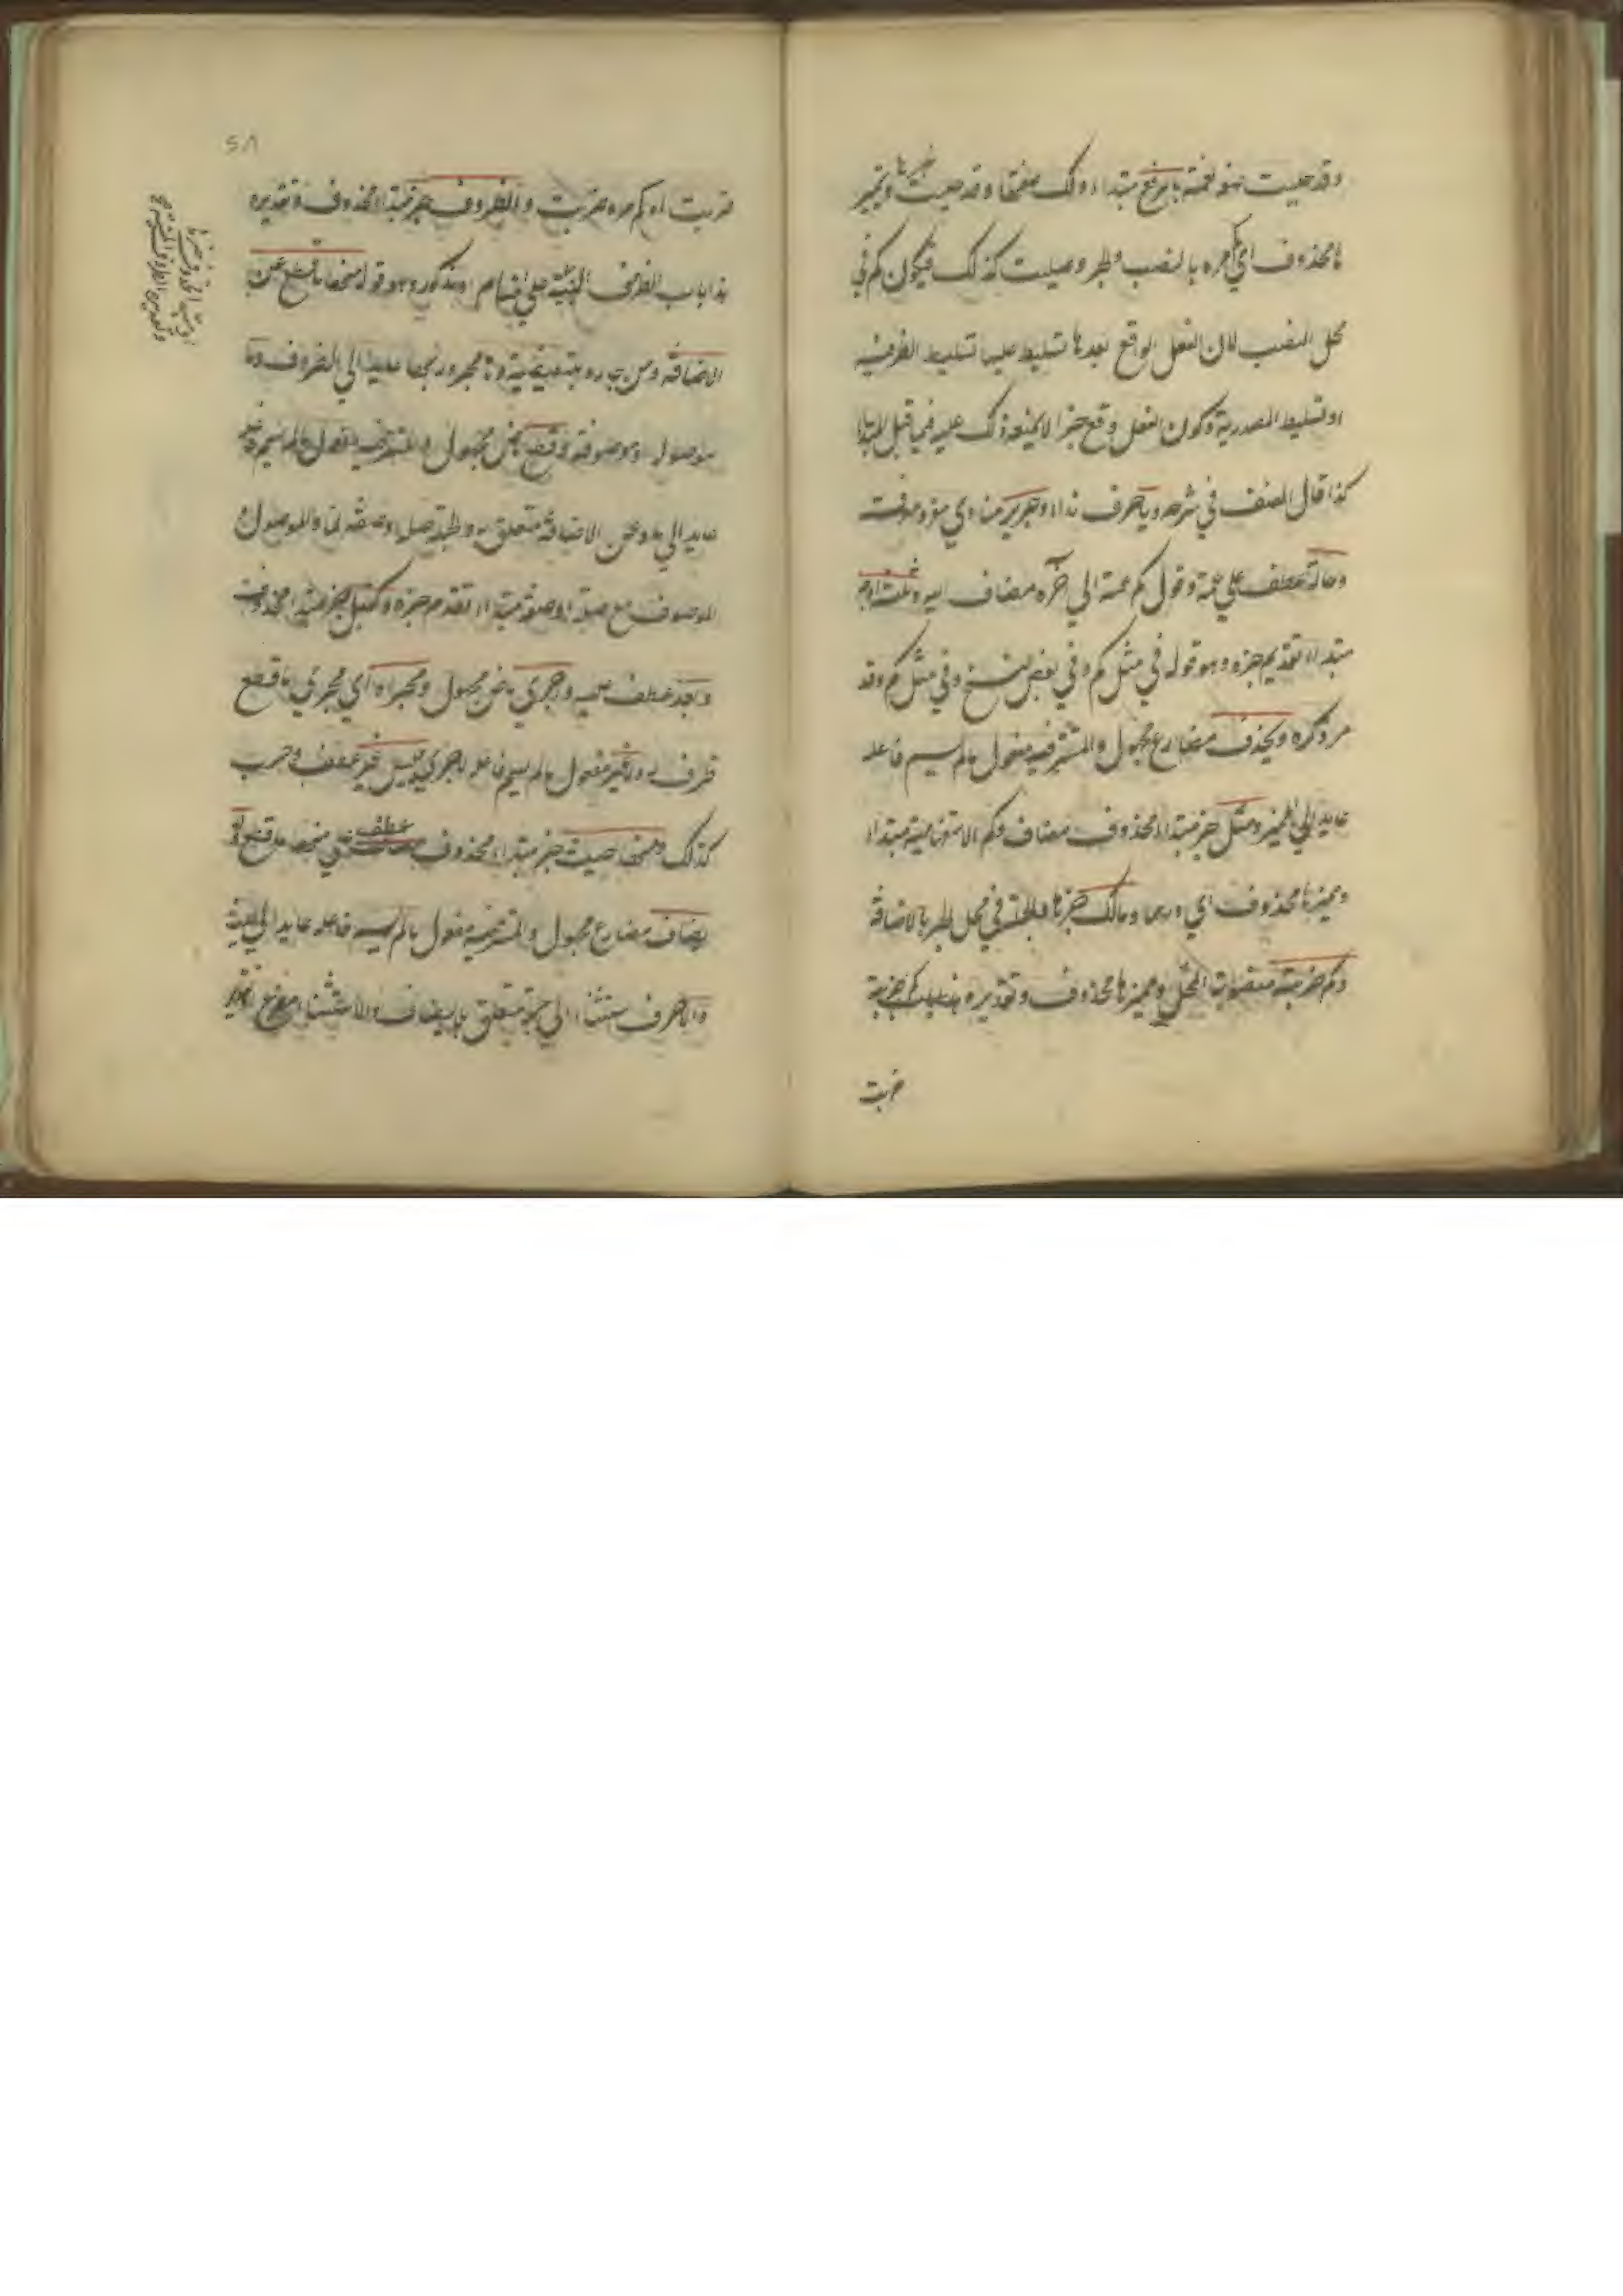 وقد حلبت نحو عمة بالرفع مبتداء ولك صفتها وقد حلبت خبرها ومميز
ها محذوف اي كم مرة بالنصب والجر وحلبت كذلك فيكون كم في
محل النصب لان الفعل الواقع بعدها تسليط عليها تسليط الظرفية
او تسليط المصدرية وكون الفعل وقع خبرا لا يمنع ذلك عليه فيما قبل المبتدا
كذا قال المصنف في شرحه ويا حرف نداء وجرير منادى مفرد معرفت
وخالة عطف على عمة وقول كم عمة الى اخره مضاف اليه وثلث اوجه
مبتداء تقديم خبره وهو قوله في مثل كم وفي بعض النسخ وفي مثل كم وقد
مر ذكره ويحذف مضارع مجهول والمستتر فيه مفعول مالم يسم فاعله
عايد الى المميز ومثل خبر مبتداء محذوف مضاف وكم الاستفهامية مبتداء
ومميزها محذوف اي درهما ومالك خبرها والجملة في محل الجر بالاضافة
وكم ضربت منصوبة المحل ومميزها محذوف وتقديره كم ضربة
ضربت
٥٨
ضربت او كم مرة ضربت والظروف خبر مبتداء محذوف وتقديره
هذا باب الظروف المبنية على اقسام مذكور وهو قوله منها ما قطع عن
الاضافة ومن جارة تبعيضية وها مجرور بها عايد الى الظروف وما
موصول او موصوفة وقطع ماض مجهول والمستتر فيه مفعول مالم يسم فاعله
عايد الى ما وعن الاضافة متعلق به والجملة صلة او صفة لما والموصول او
الموصوف مع صلته او صفته مبتداء تقدم خبره وكقبل خبر مبتداء محذوف
وبعد عطف عليه واجري ماض مجهول ومجراه اي مجرى ما قطع
ظرف له ولا غير مفعول مالم يسم فاعله لاجري وليس غير عطف وحسب
كذلك ومنها حيث خبر مبتداء محذوف عطف على منها ما قطع ولا
يضاف مضارع مجهول والمستتر فيه مفعول مالم يسم فاعله عايد الى حيث
والا حرف استثناء الى جملة متعلق بلا يضاف والاستثناء مفرغ تقدير